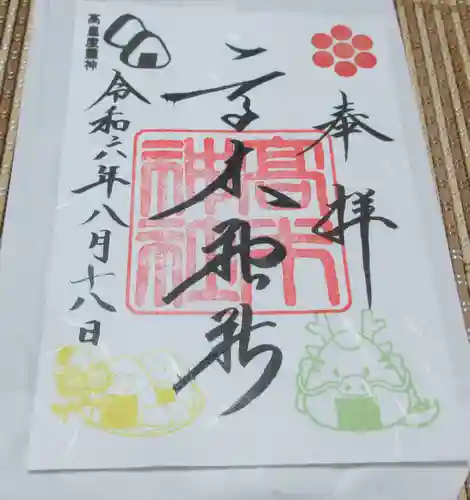 奉拝
高木神社
高木
神社
高皇産霊神
令和六年八月十八日